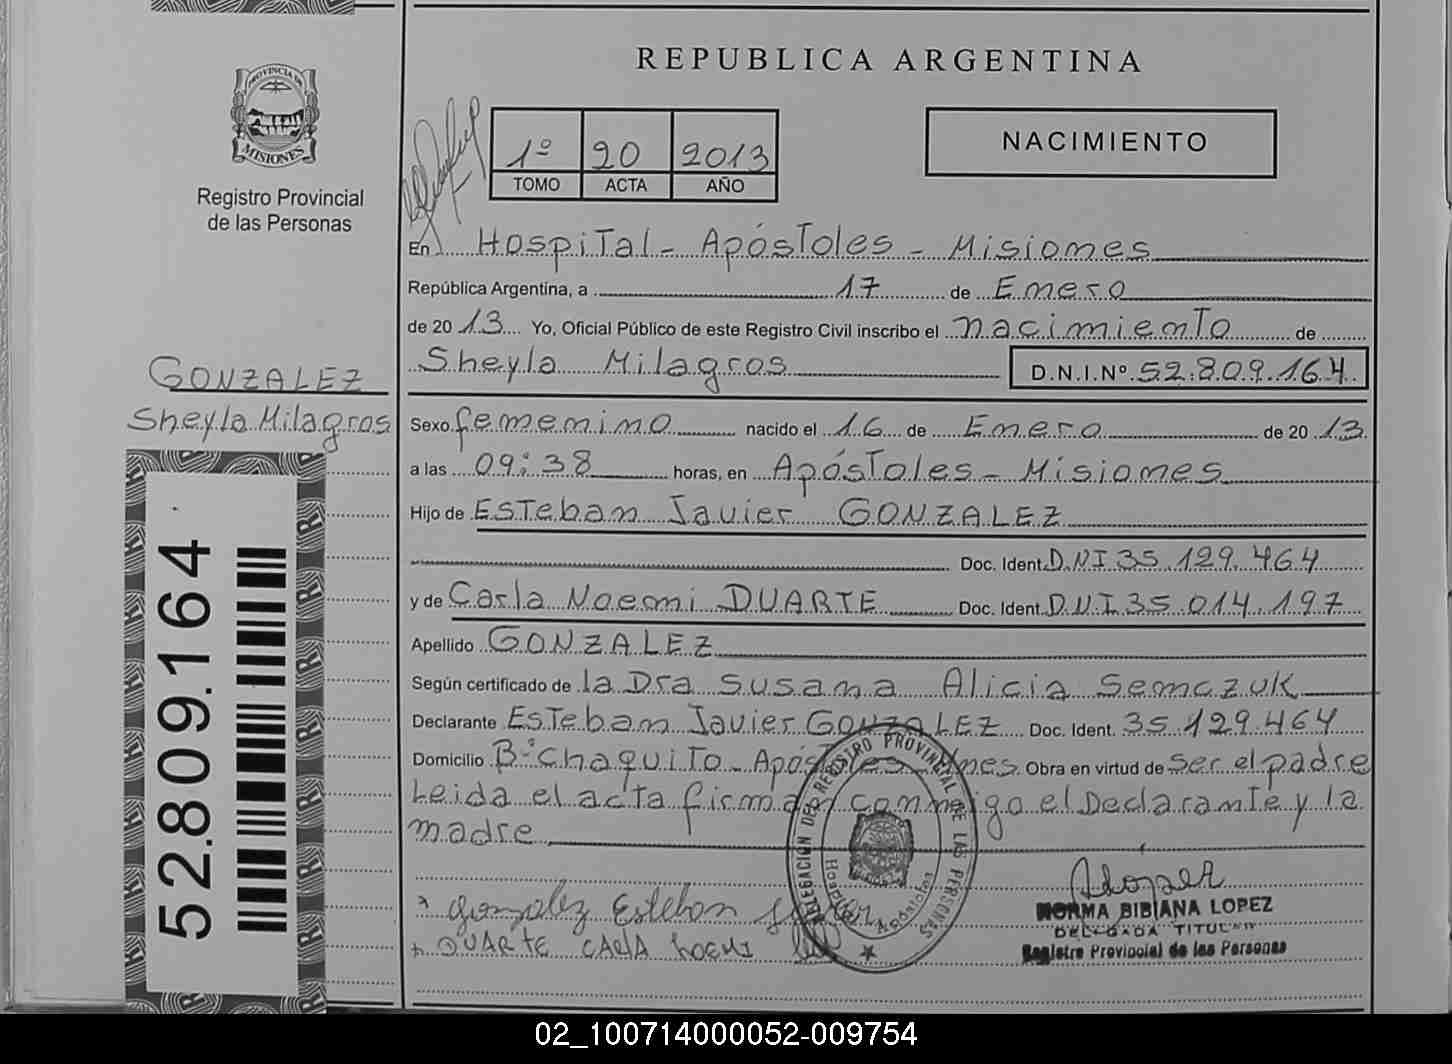 REPUBLICA ARGENTINA
PROVINCIA DE
MISIONES
Registro Provincial
de las Personas
1º 20 2013
TOMO ACTA AÑO
NACIMIENTO
En Hospital - Apóstoles - Misiones
República Argentina, a 17 de Enero
de 2013 Yo, Oficial Público de este Registro Civil inscribo el nacimiento de
Sheyla Milagros D.N.I.Nº 52.809.164
GONZALEZ
Sheyla Milagros
Sexo femenino nacido el 16 de Enero de 2013
a las 09:38 horas, en Apóstoles - Misiones
Hijo de Esteban Javier GONZALEZ
Doc. Ident. DNI 35.129.464
y de Carla Noemi DUARTE Doc. Ident. DNI 35.014.197
Apellido GONZALEZ
Según certificado de la Dra Susana Alicia Semczuk
Declarante Esteban Javier GONZALEZ Doc. Ident. 35.129.464
Domicilio Bº Chaquito - Apóstoles - Mnes Obra en virtud de ser el padre
Leida el acta firman conmigo el Declarante y la
madre
52.809.164
Gonzalez Esteban Javier
DUARTE CARLA NOEMI
DELEGACIÓN DEL REGISTRO PROVINCIAL DE LAS PERSONAS
Hospital Apóstoles
NLopez
NORMA BIBIANA LOPEZ
DELEGADA TITULAR
Registro Provincial de las Personas
02_100714000052-009754